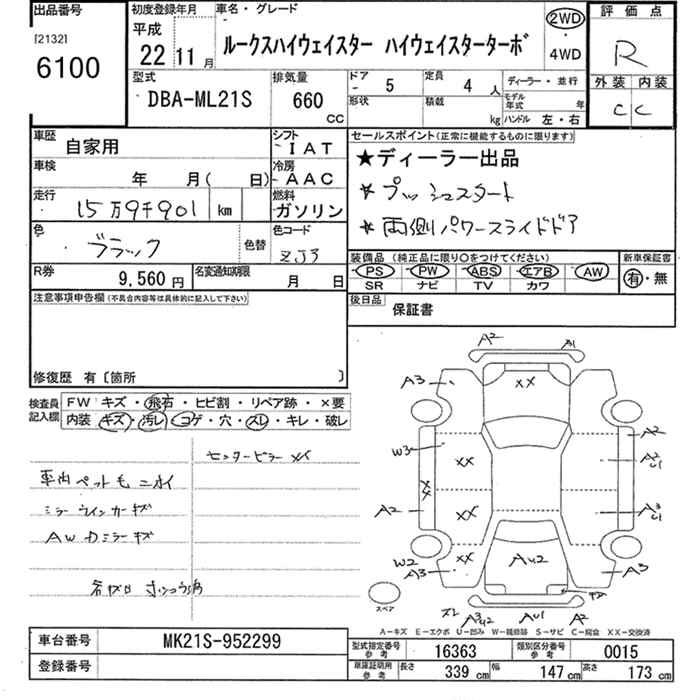 出品番号
[2132]
6100
初度登録年月
平成
22 11月
車名・グレード
ルークスハイウェイスター ハイウェイスターターボ
2WD
・
4WD
評価点
R
外装 内装
C C
型式
DBA-ML21S
排気量
660
CC
ドア
- 5
形状
定員
4 人
積載
kg
ディーラー・並行
モデル年式 年
ハンドル 左・右
車歴
自家用
シフト
-IAT
車検
年 月( 日)
冷房
-AAC
走行
15万9千901 km
燃料
ガソリン
色
ブラック
色替
色コード
ZJ3
R券
9,560円
名変通知期限
月 日
セールスポイント(正常に機能するものに限ります)
★ディーラー出品
* プッシュスタート
* 両側パワースライドドア
装備品(純正品に限り○をつけてください)
PS PW ABS エアB AW
SR ナビ TV カワ
新車保証書
有・無
後日品
保証書
注意事項申告欄(不具合内容等は具体的に記入して下さい)
修復歴 有〔箇所 〕
検査員記入欄
FW キズ・飛石・ヒビ割・リペア跡・×要
内装 キズ・汚レ・コゲ・穴・スレ・キレ・破レ
センターピラー XX
車内ペット毛ニオイ
ミラーウインカーキズ
AWカミラーキズ
A2 A1
A3 XX
W3 XX A2
A2 U1
XX
A2 XX A3
U1
W2 XX AU2
A3 A3
スペア
A3 U2 AU1 A2
A-キズ E-エクボ U-凹み W-補修跡 S-サビ C-腐食 XX-交換済
車台番号
MK21S-952299
登録番号
型式指定番号 参考
16363
類別区分番号 参考
0015
車庫証明用 参考
長さ 339 cm 幅 147 cm 高さ 173 cm